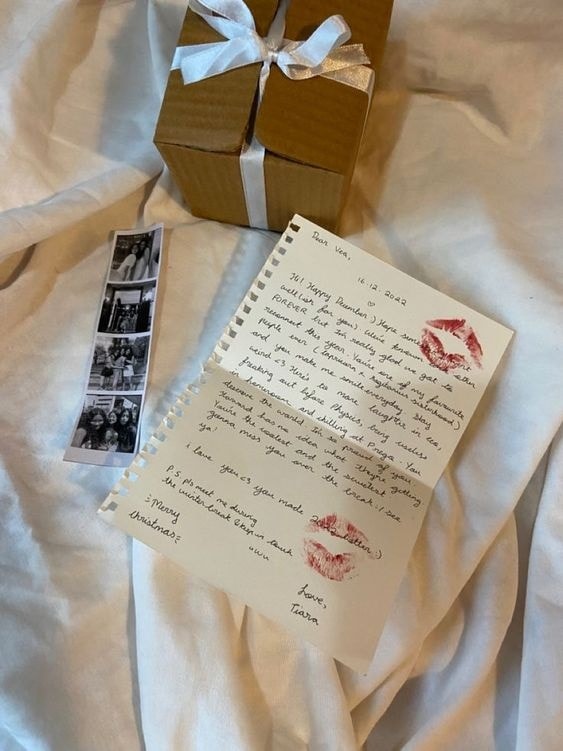 Dear Vea,
16.12.2022
Hi! Happy December :) Hope
well (ish for you). We've known
FOREVER but I'm really glad we got to
reconnect this year. You're one of my favourite
people ever (capricorn & sisterhood)
and you make me smile everyday. Stay
weird <3 Here's to more laughter in
freaking out before Physics, being useless
in and chilling at You
deserve the world. I'm so proud of you.
Harvard has no idea what they're getting
You're the coolest and the sweetest
gonna miss you over the break. I see
ya!
I love you <3 you made better :)
P.S. pls meet me during
the winter break & keep in touch
uwu
Merry
Christmas
Love,
Tiara